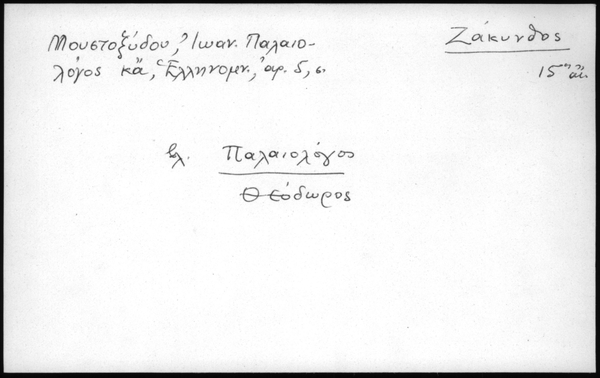 Μουστοξύδου, Ἰωαν. Παλαιο-
λόγος κἄ, Ἑλληνομν., ἀρ. 5, σ.
Ζάκυνθος
15ος αἰ.
βλ. Παλαιολόγος
Θεόδωρος